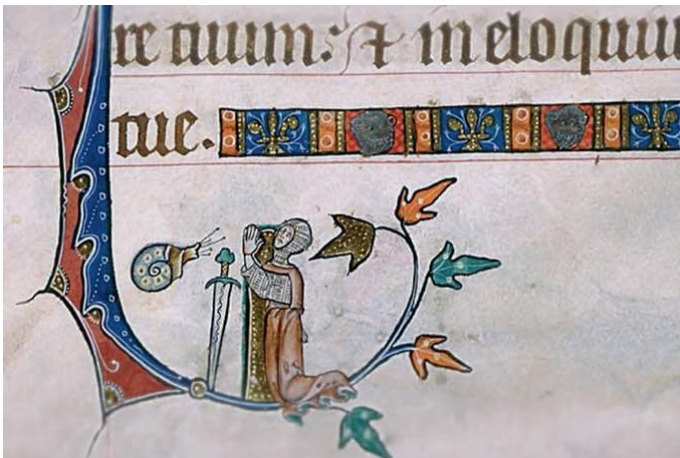 re tuum: ⁊ in eloquiu
tue.